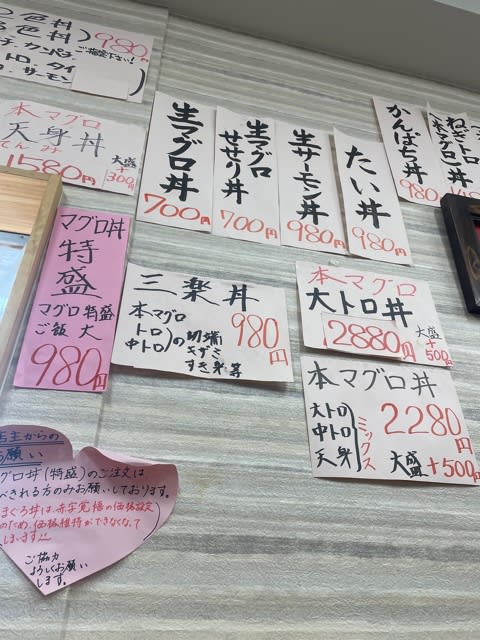 ２色丼
色丼
チ、カンパチ
トロ、タイ
サーモン
ご指定下さい!
980円
本マグロ
天身丼
てんみ
1580円
大盛
+300円
生マグロ丼
700円
生マグロ
せせり丼
700円
生サーモン丼
980円
たい丼
980円
かんぱち丼
980
ねぎトロ丼
マグロ丼
特盛
マグロ特盛
ご飯 大
980円
三楽丼
本マグロ
トロ
中トロ
の切端
きずこ
すき身等
980円
本マグロ
大トロ丼
2880円
大盛
+500円
本マグロ丼
大トロ
中トロ
天身
ミックス
2280円
大盛+500円
店主からの
お願い
グロ丼(特盛)のご注文は
べきれる方のみお願いしております。
まぐろ丼は、赤字覚悟の価格設定
のため、価格維持ができなくなって
しまいます!!
ご協力
よろしくお願い
します。